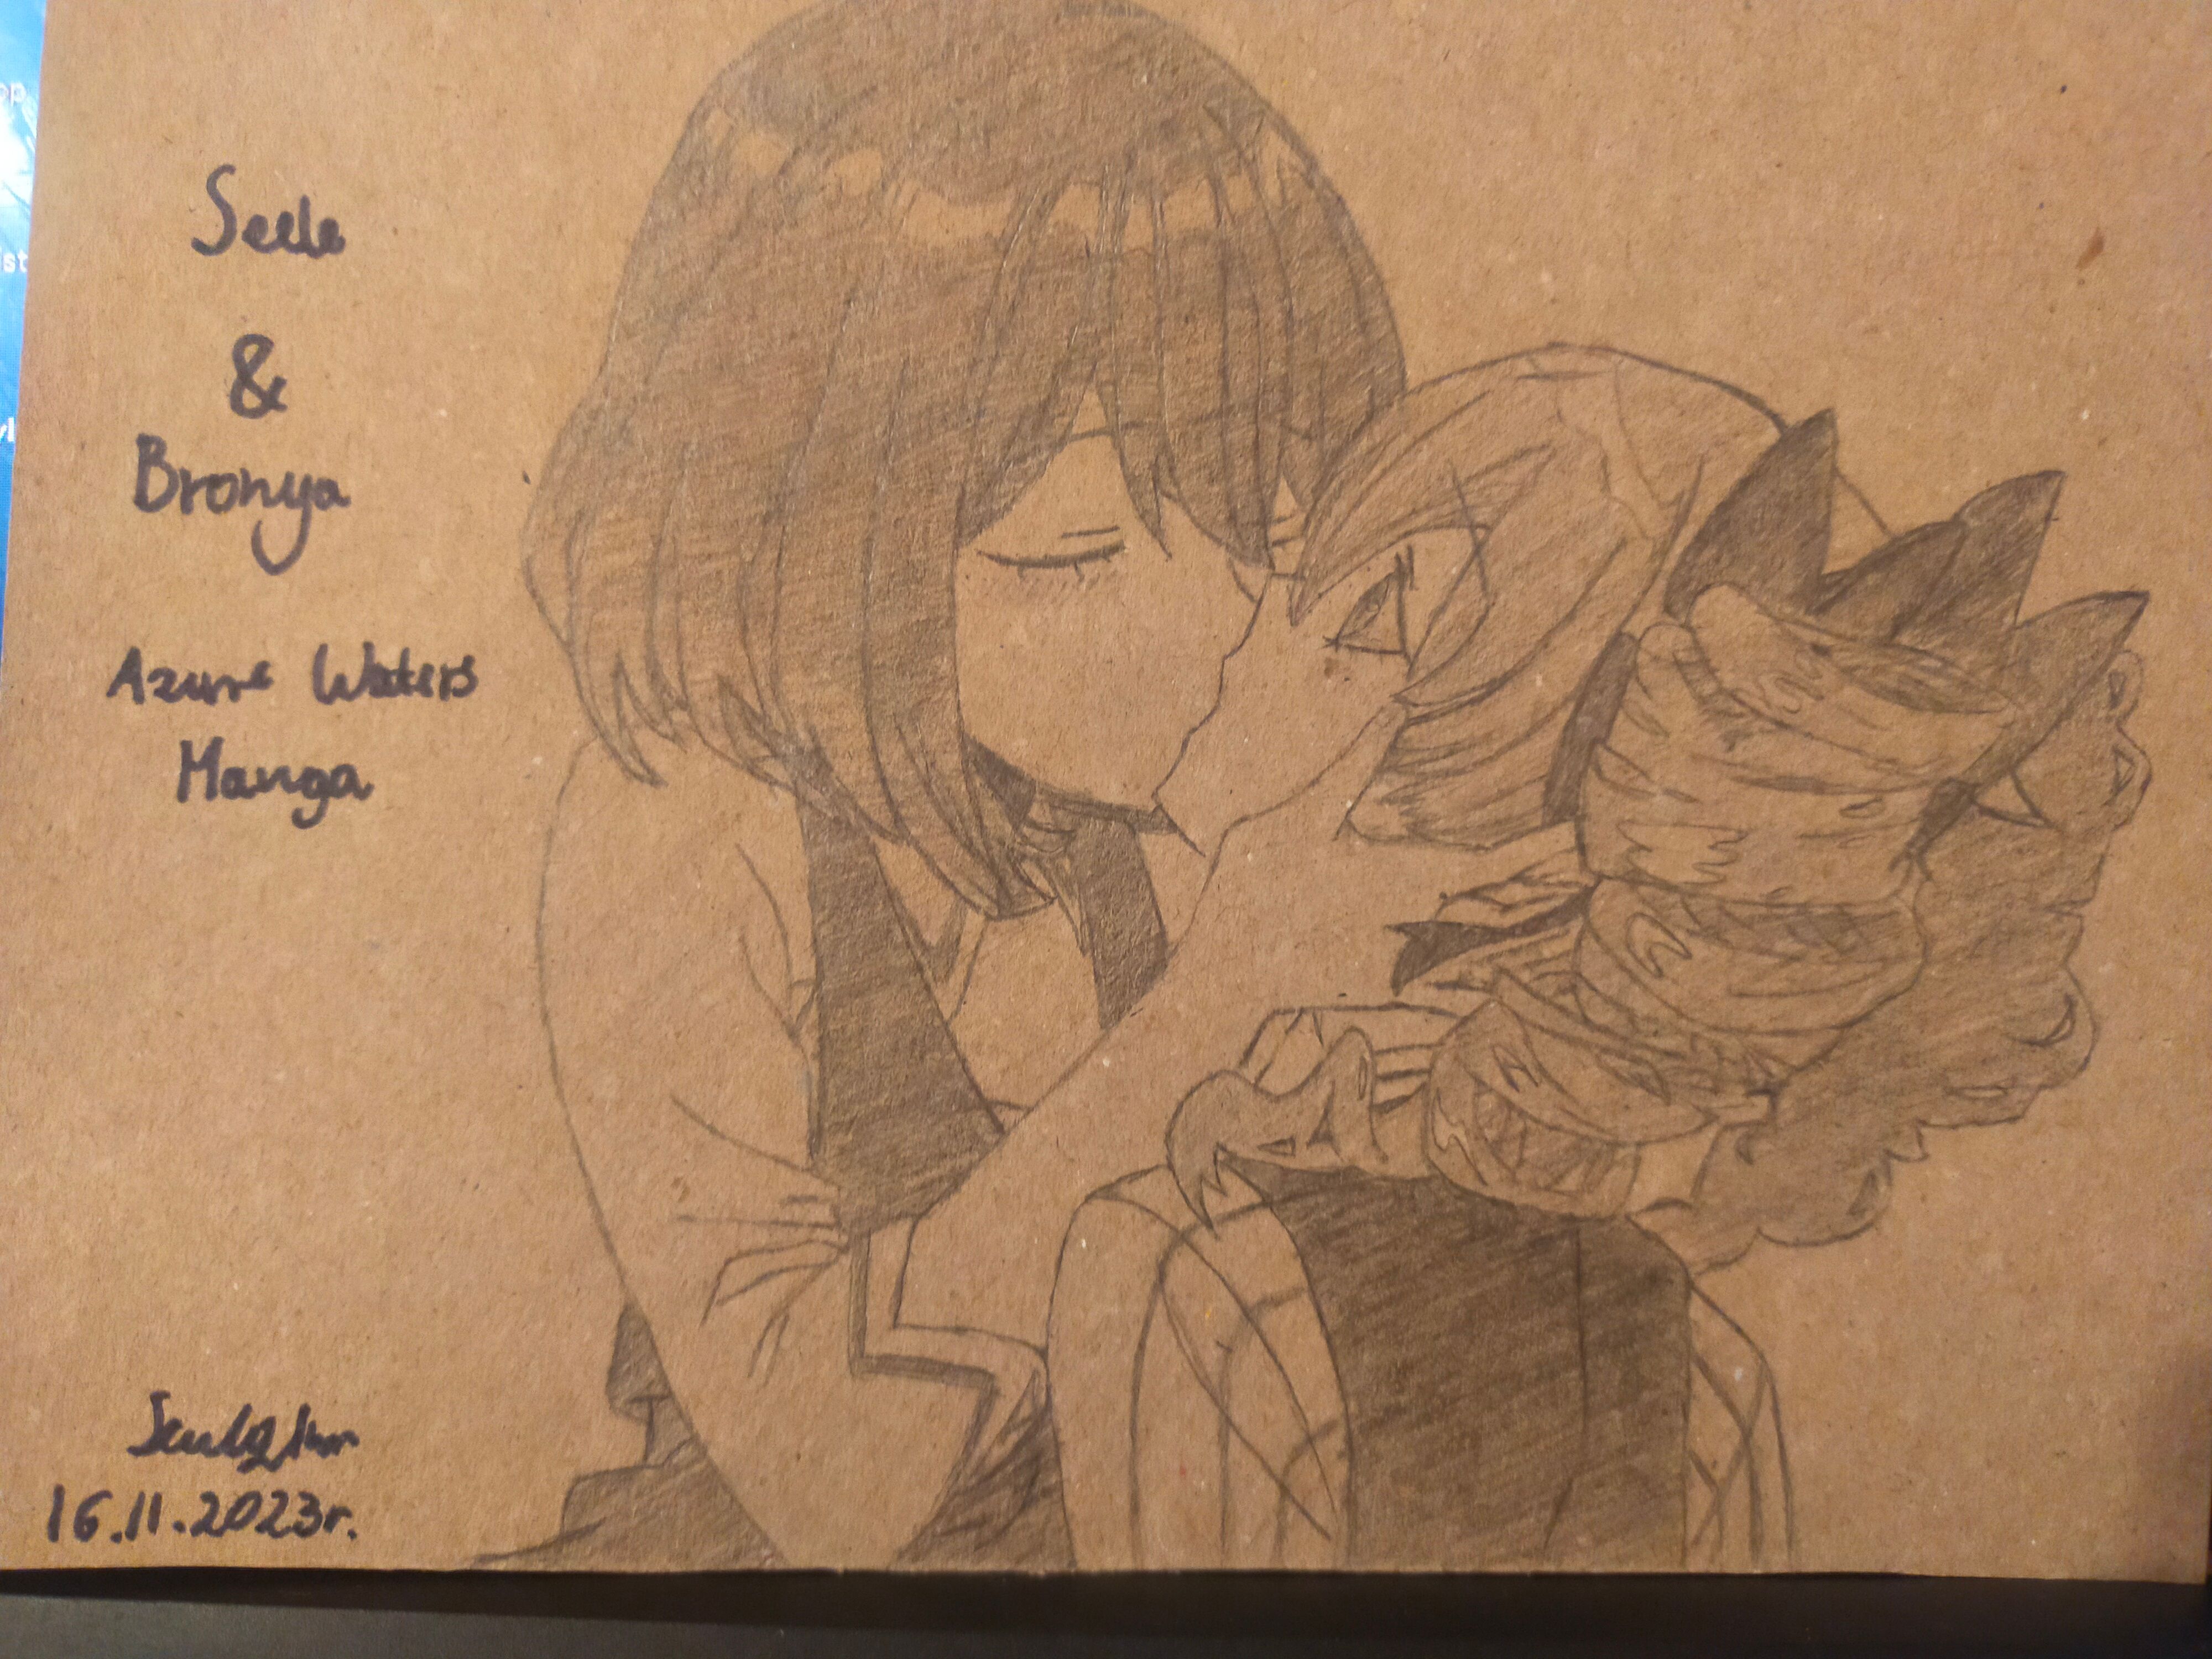 Seele
&
Bronya
Azure Waters
Manga
16.11.2023r.